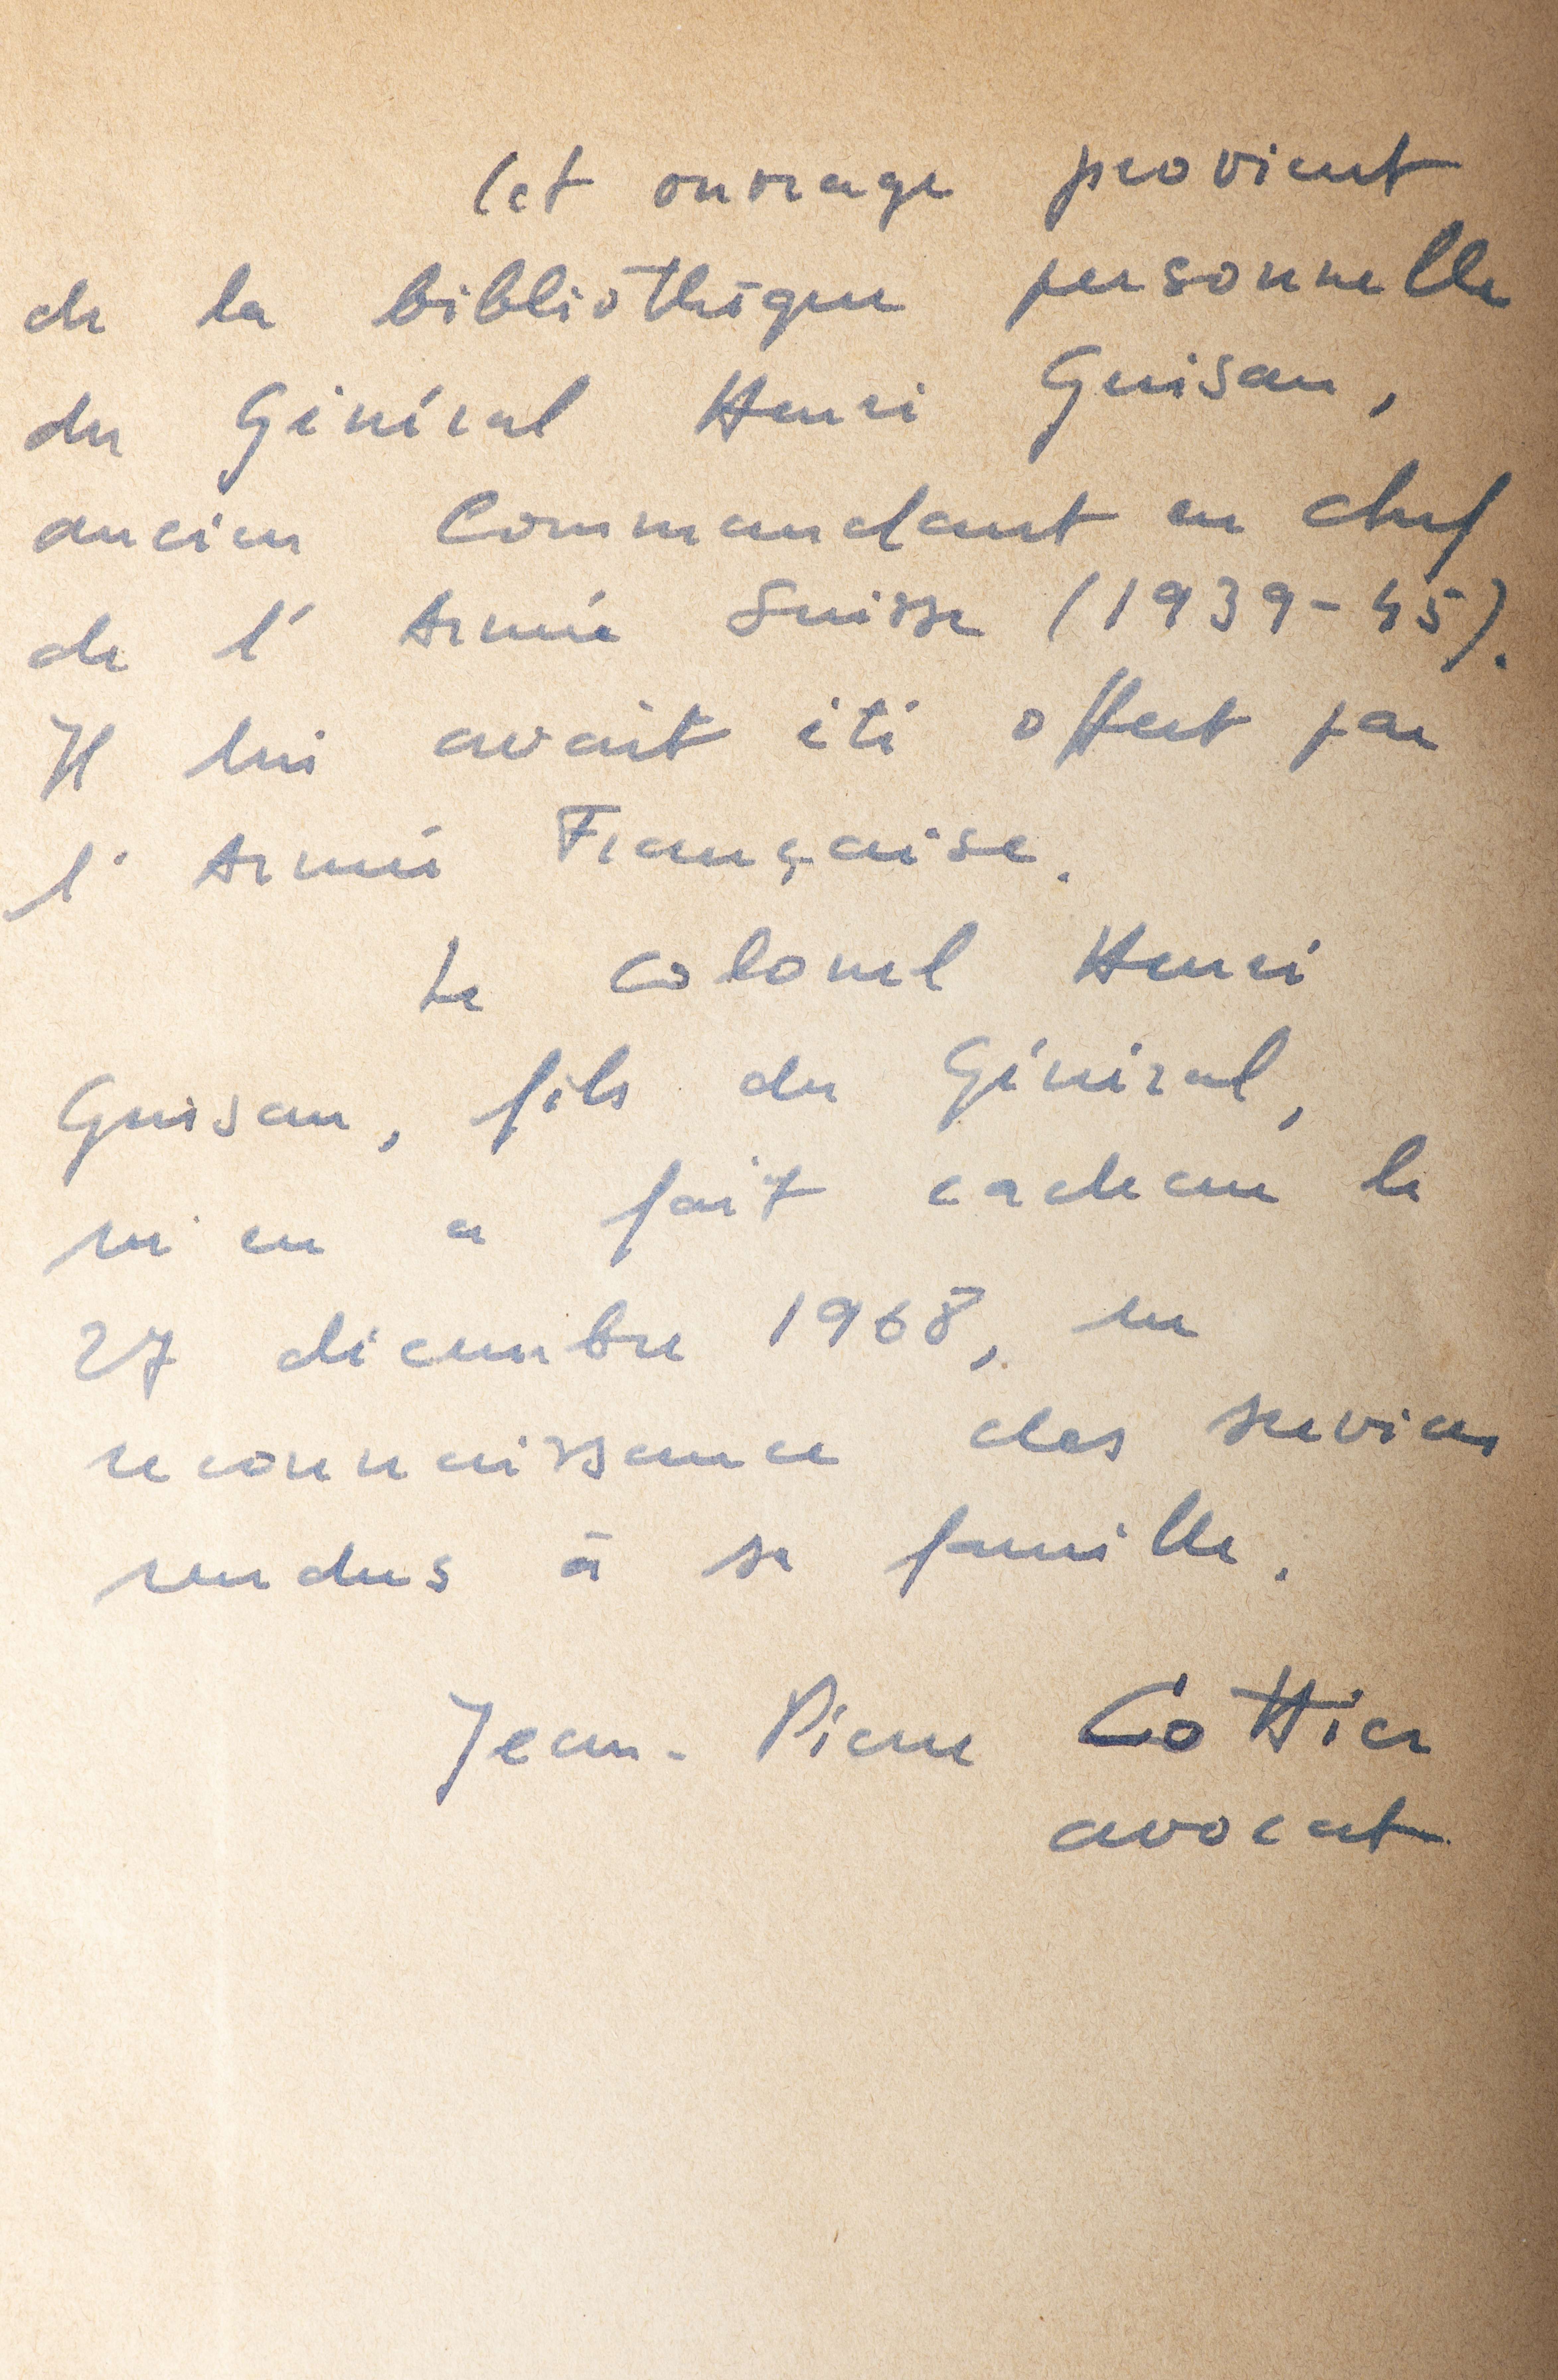 Cet ouvrage provient
de la bibliothèque personnelle
du Général Henri Guisan,
ancien Commandant en chef
de l'Armée Suisse (1939-45).
Il lui avait été offert par
l'Armée Française.
Le Colonel Henri
Guisan, fils du Général,
m'en a fait cadeau le
27 décembre 1968, en
reconnaissance des services
rendus à sa famille.
Jean-Pierre Cottier
avocat